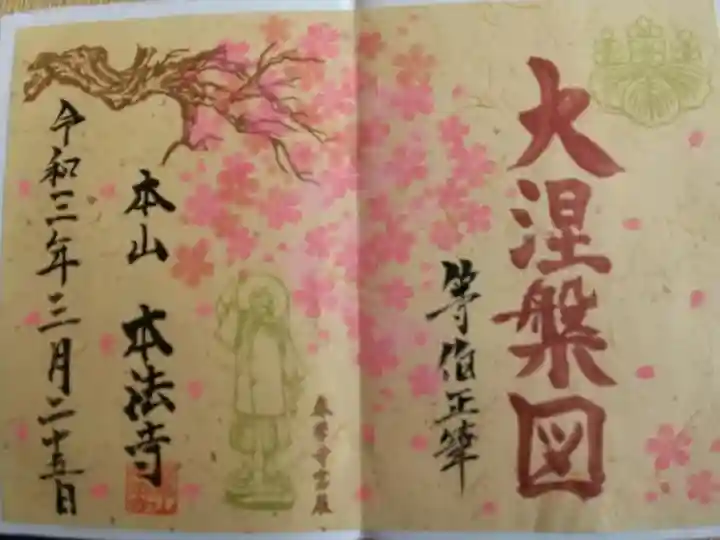 大涅槃図
等伯正筆
春季寺宝展
本山 本法寺
令和三年三月二十五日